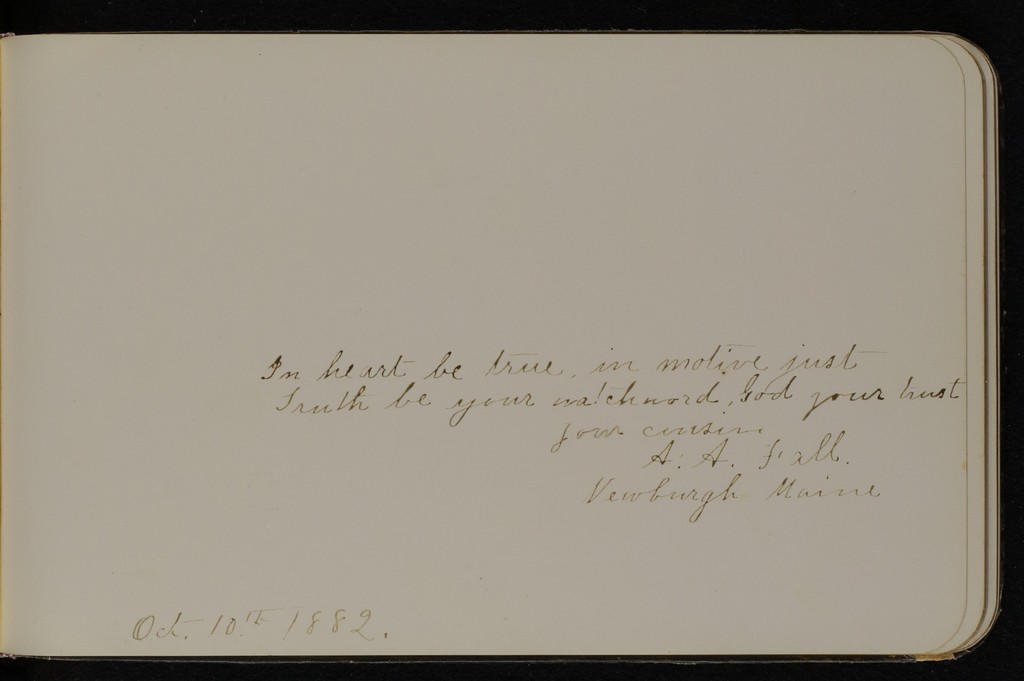 In heart be true, in motive just
Truth be your watchword, God your trust
your cousin
A. A. Fall.
Newburgh Maine
Oct. 10th 1882.